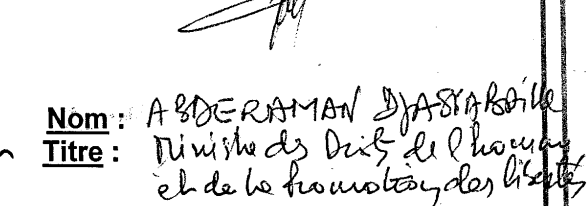 Nom : ABDERAMAN DJASNABAILLE
Titre : Ministre des Droits de l'homme
et de la Promotion des libertés